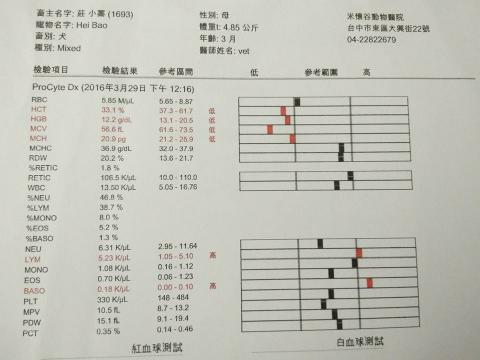 畜主名字: 莊 小蓁 (1693) 性別: 母 米懷谷動物醫院
寵物名字: Hei Bao 體重t: 4.85 公斤 台中市東區大興街22號
畜別: 犬 年齡: 3 月 04-22822679
種別: Mixed 醫師姓名: vet
檢驗項目 檢驗結果 參考區間 低 參考範圍 高
ProCyte Dx (2016年3月29日 下午 12:16)
RBC 5.85 M/µL 5.65 - 8.87
HCT 33.1 % 37.3 - 61.7 低
HGB 12.2 g/dL 13.1 - 20.5 低
MCV 56.6 fL 61.6 - 73.5 低
MCH 20.9 pg 21.2 - 25.9 低
MCHC 36.9 g/dL 32.0 - 37.9
RDW 20.2 % 13.6 - 21.7
%RETIC 1.8 %
RETIC 106.5 K/µL 10.0 - 110.0
WBC 13.50 K/µL 5.05 - 16.76
%NEU 46.8 %
%LYM 38.7 %
%MONO 8.0 %
%EOS 5.2 %
%BASO 1.3 %
NEU 6.31 K/µL 2.95 - 11.64
LYM 5.23 K/µL 1.05 - 5.10 高
MONO 1.08 K/µL 0.16 - 1.12
EOS 0.70 K/µL 0.06 - 1.23
BASO 0.18 K/µL 0.00 - 0.10 高
PLT 330 K/µL 148 - 484
MPV 10.5 fL 8.7 - 13.2
PDW 15.1 fL 9.1 - 19.4
PCT 0.35 % 0.14 - 0.46
紅血球測試 白血球測試